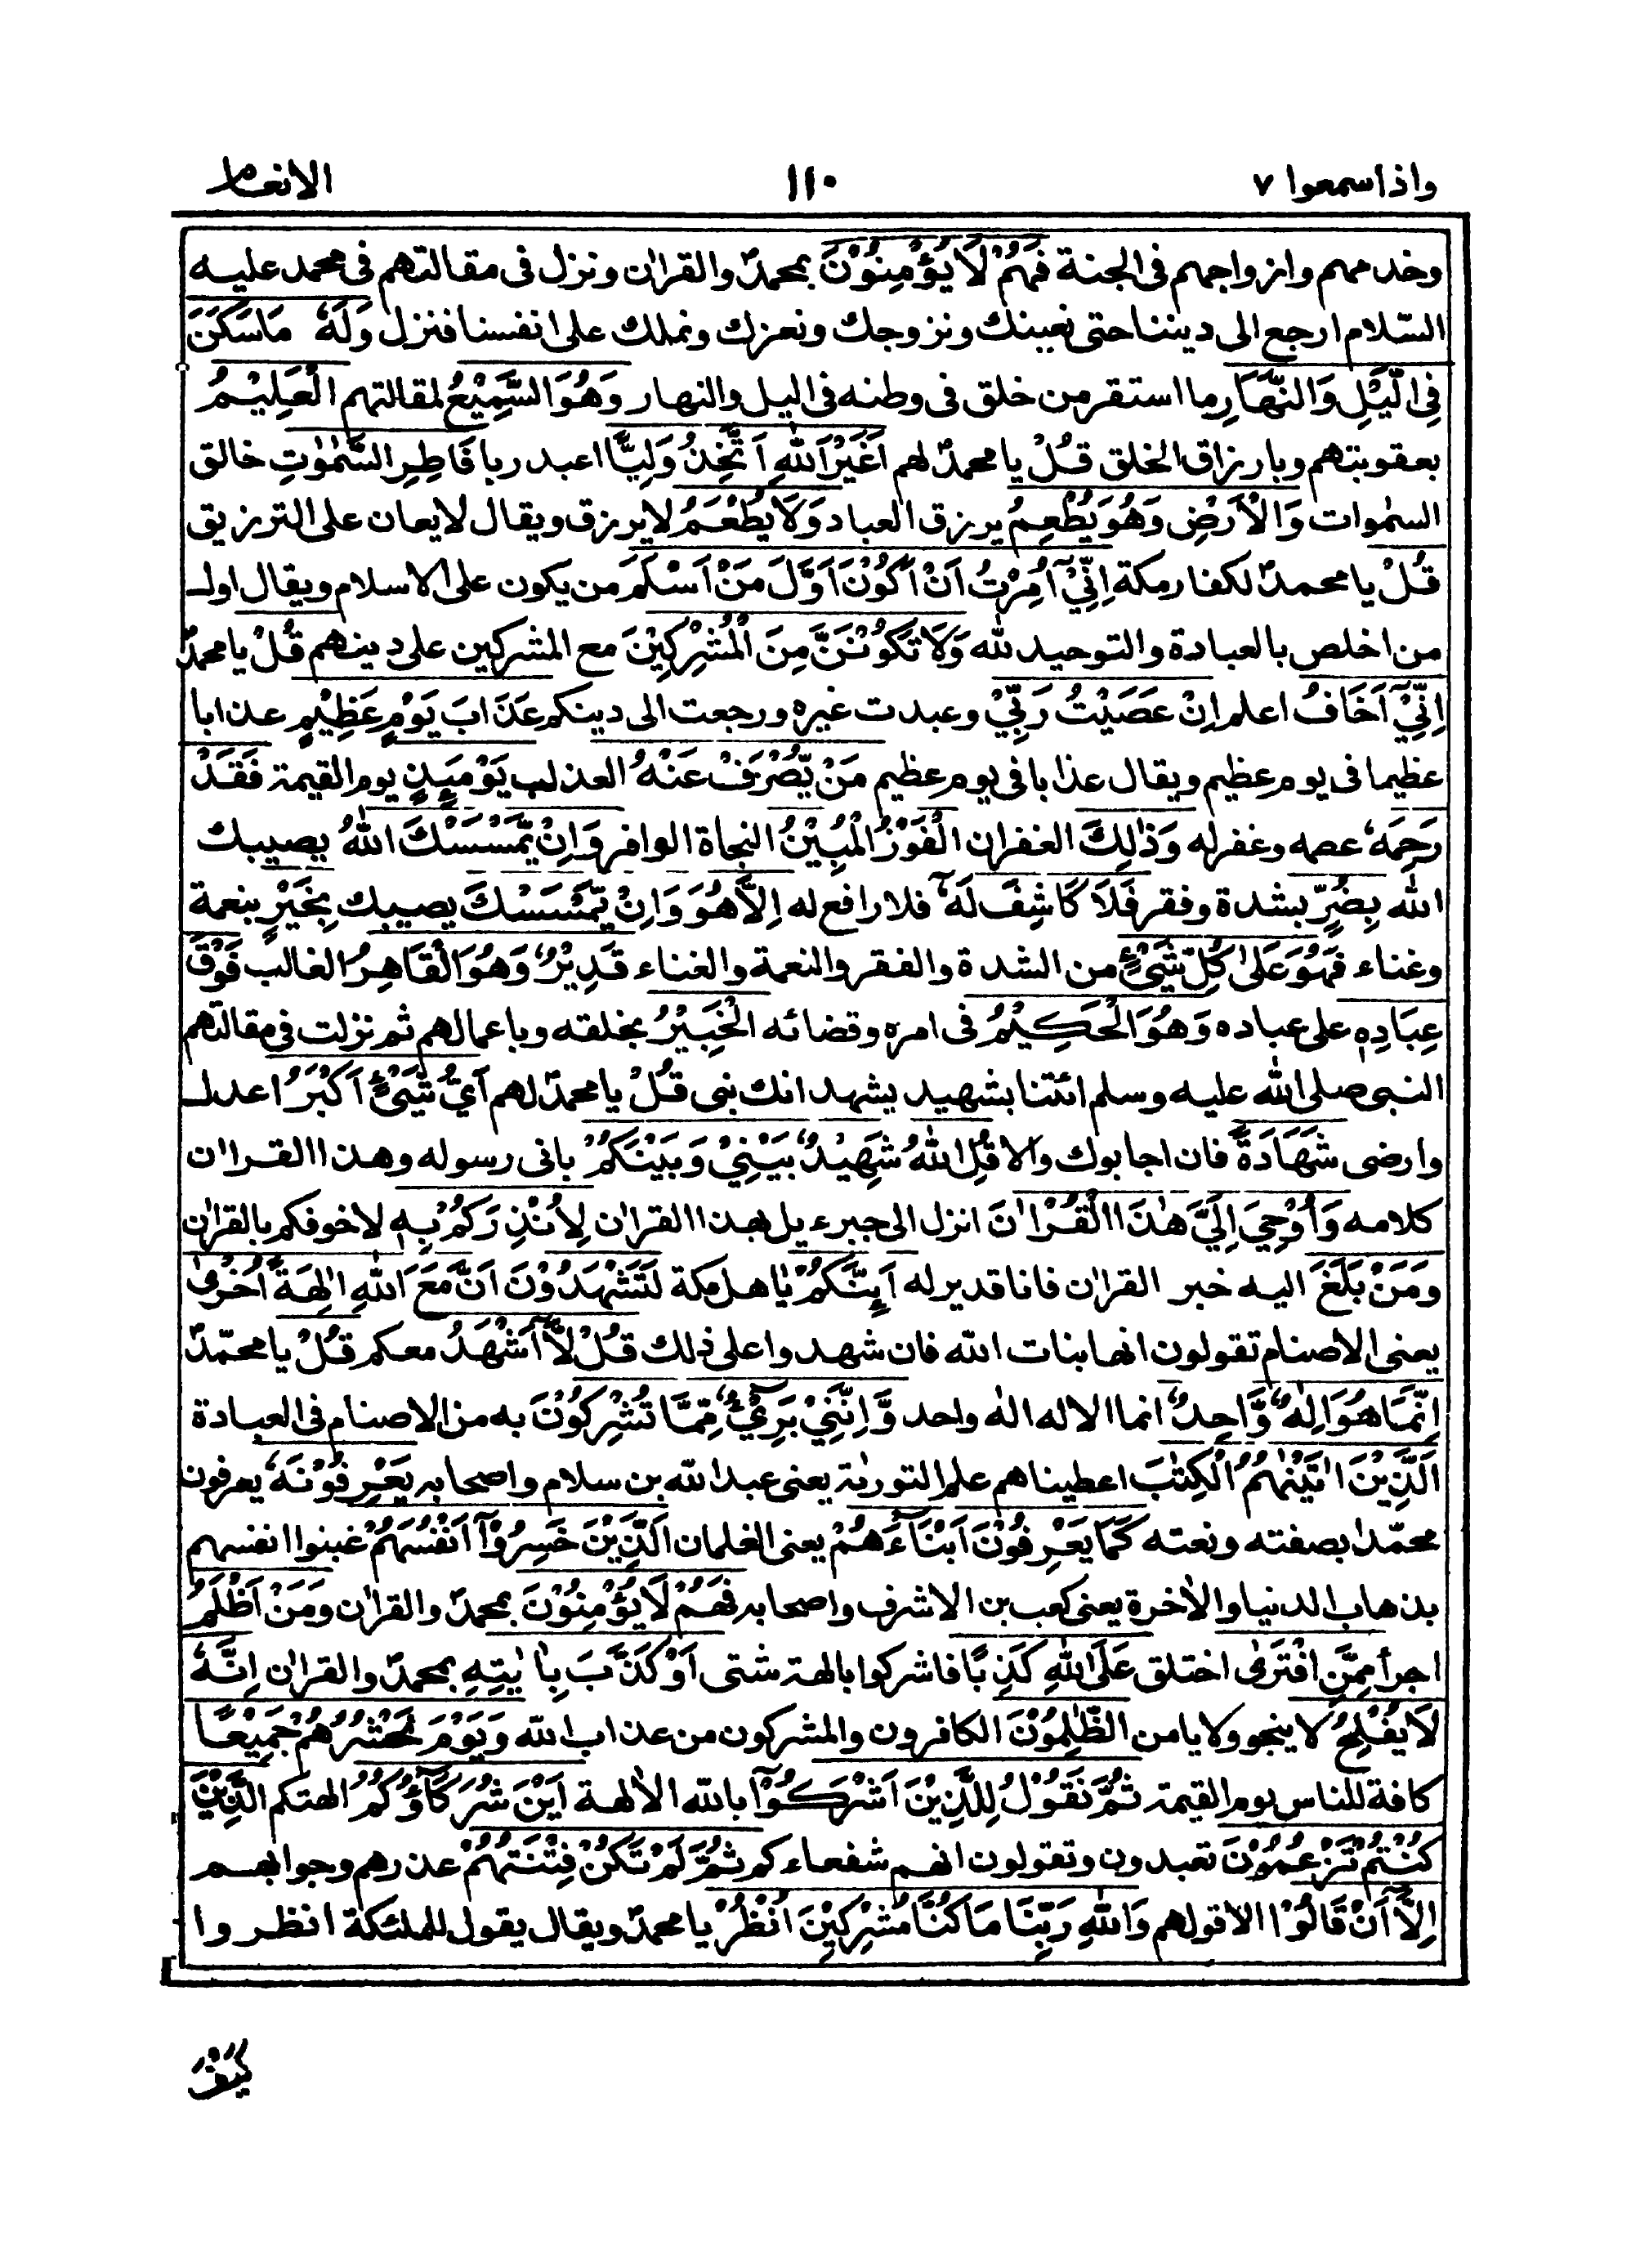 واذاسمعوا ٧
١١٠
الانعام
وخدمهم وازواجهم فى الجنة فَهُمْ لَا يُؤْمِنُوْنَ بمحمدؐ والقراٰن ونزل فى مقالتهم فى محمد عليه
السّلام ارجع الى ديننا حتى نعينك ونزوجك ونعزك ونملك على انفسنا فنزل وَلَهٗ مَا سَكَنَ
فِى الَّيْلِ وَالنَّهَارِ ما استقر من خلق فى وطنه فى اليل والنهار وَهُوَ السَّمِيْعُ لمقالتهم الْعَلِيْمُ
بعقوبتهم وبارزاق الخلق قُلْ يا محمدؐ لهم اَغَيْرَ اللّٰهِ اَتَّخِذُ وَلِيًّا اعبد ربا فَاطِرِ السَّمٰوٰتِ خالق
السمٰوات وَالْاَرْضِ وَهُوَ يُطْعِمُ يرزق العباد وَلَا يُطْعَمُ لا يرزق ويقال لا يعان على الترزيق
قُلْ يا محمدؐ لكفار مكة اِنِّيْٓ اُمِرْتُ اَنْ اَكُوْنَ اَوَّلَ مَنْ اَسْلَمَ من يكون على الاسلام ويقال اول
من اخلص بالعبادة والتوحيد لله وَلَا تَكُوْنَنَّ مِنَ الْمُشْرِكِيْنَ مع المشركين على دينهم قُلْ يا محمدؐ
اِنِّيْٓ اَخَافُ اعلم اِنْ عَصَيْتُ رَبِّيْ وعبدت غيره ورجعت الى دينكم عَذَابَ يَوْمٍ عَظِيْمٍ عذابا
عظيما فى يوم عظيم ويقال عذابا فى يوم عظيم مَنْ يُّصْرَفْ عَنْهُ العذاب يَوْمَئِذٍ يوم القيمة فَقَدْ
رَحِمَهٗ عصمه وغفرله وَذٰلِكَ الغفران الْفَوْزُ الْمُبِيْنُ النجاة الوافر وَاِنْ يَّمْسَسْكَ اللّٰهُ يصيبك
الله بِضُرٍّ بشدة وفقر فَلَا كَاشِفَ لَهٗٓ فلا رافع له اِلَّا هُوَ وَاِنْ يَّمْسَسْكَ يصيبك بِخَيْرٍ بنعمة
وغناء فَهُوَ عَلٰى كُلِّ شَيْءٍ من الشدة والفقر والنعمة والغناء قَدِيْرٌ وَهُوَ الْقَاهِرُ الغالب فَوْقَ
عِبَادِهٖ على عباده وَهُوَ الْحَكِيْمُ فى امره وقضائه الْخَبِيْرُ بخلقه وباعمالهم ثم نزلت فى مقالتهم
النبى صلى الله عليه وسلم ائتنا بشهيد يشهد انك نبى قُلْ يا محمدؐ لهم اَيُّ شَيْءٍ اَكْبَرُ اعدل
وارضى شَهَادَةً فان اجابوك والا قُلِ اللّٰهُ شَهِيْدٌ بَيْنِيْ وَبَيْنَكُمْ بانى رسوله وهذا القراٰن
كلامه وَاُوْحِيَ اِلَيَّ هٰذَا الْقُرْاٰنَ انزل الى جبرءيل بهذا القراٰن لِاُنْذِرَكُمْ بِهٖ لاخوفكم بالقراٰن
وَمَنْ بَلَغَ اليه خبر القراٰن فانا قديرله اَئِنَّكُمْ يا اهل مكة لَتَشْهَدُوْنَ اَنَّ مَعَ اللّٰهِ اٰلِهَةً اُخْرٰى
يعنى الاصنام تقولون انها بنات الله فان شهدوا على ذلك قُلْ لَّآ اَشْهَدُ معكم قُلْ يا محمّدؐ
اِنَّمَا هُوَ اِلٰهٌ وَّاحِدٌ انما الاله اله واحد وَّاِنَّنِيْ بَرِيْٓءٌ مِّمَّا تُشْرِكُوْنَ به من الاصنام فى العبادة
اَلَّذِيْنَ اٰتَيْنٰهُمُ الْكِتٰبَ اعطيناهم علم التورٰىة يعنى عبدالله بن سلام واصحابه يَعْرِفُوْنَهٗ يعرفون
محمّدا بصفته ونعته كَمَا يَعْرِفُوْنَ اَبْنَآءَهُمْ يعنى الغلمان اَلَّذِيْنَ خَسِرُوْٓا اَنْفُسَهُمْ غبنوا انفسهم
بذهاب الدنيا والاٰخرة يعنى كعب بن الاشرف واصحابه فَهُمْ لَا يُؤْمِنُوْنَ بمحمدؐ والقراٰن وَمَنْ اَظْلَمُ
اجرأ مِمَّنِ افْتَرٰى اختلق عَلَى اللّٰهِ كَذِبًا فاشركوا بالهة شتى اَوْ كَذَّبَ بِاٰيٰتِهٖ بمحمدؐ والقراٰن اِنَّهٗ
لَا يُفْلِحُ لا ينجو ولا يامن الظّٰلِمُوْنَ الكافرون والمشركون من عذاب الله وَيَوْمَ نَحْشُرُهُمْ جَمِيْعًا
كافة للناس يوم القيمة ثُمَّ نَقُوْلُ لِلَّذِيْنَ اَشْرَكُوْٓا بالله الاٰلهة اَيْنَ شُرَكَآؤُكُمُ الهتكم الَّذِيْنَ
كُنْتُمْ تَزْعُمُوْنَ تعبدون وتقولون انهم شفعاءكم ثُمَّ لَمْ تَكُنْ فِتْنَتُهُمْ عذرهم وجوابهم
اِلَّآ اَنْ قَالُوْا الا قولهم وَاللّٰهِ رَبِّنَا مَا كُنَّا مُشْرِكِيْنَ اُنْظُرْ يا محمدؐ ويقال يقول للملئكة انظروا
كَيْفَ